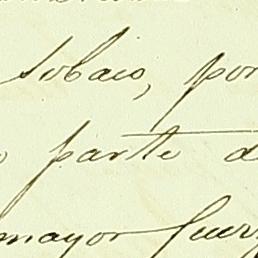 Tobaio, por
parte d
mayor fuer